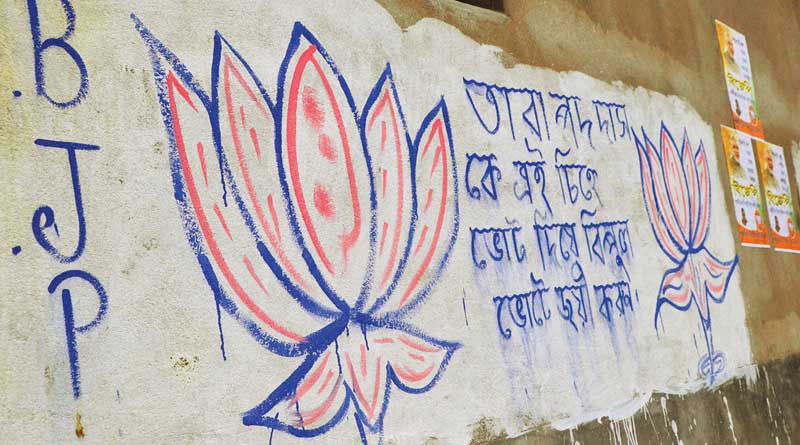 BJP
তারাপদ দাস
কে এই চিহ্নে
ভোট দিয়ে বিপুল
ভোটে জয়ী করুন।